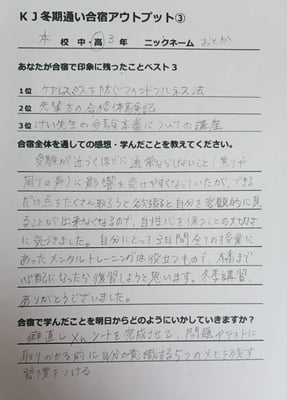 KJ冬期通い合宿アウトプット③
本校 中・高 3年 ニックネーム おとか
あなたが合宿で印象に残ったことベスト3
1位 ケアレスミスを防ぐマインドフルネス法
2位 先輩方の合格体験記
3位 けい先生の受験本番についての講座
合宿全体を通しての感想・学んだことを教えてください。
受験が近づくほどに
周りの声に影響を受けやすくなっていたが、できる
だけ点をたくさん取ろうと自分を客観的に見
ることが出来なくなるので、自制心を保つことの大切さ
に気づきました。自分にとって3日間全ての授業に
あったメンタルトレーニングは役立つもので、本番まで
心配になったら復習しようと思います。冬季講習、
ありがとうございました。
合宿で学んだことを明日からどのようにいかしていきますか?
シートを完成させて、問題やテストに
取りかかる前に自分の意識する5つのメモを残す
習慣をつける